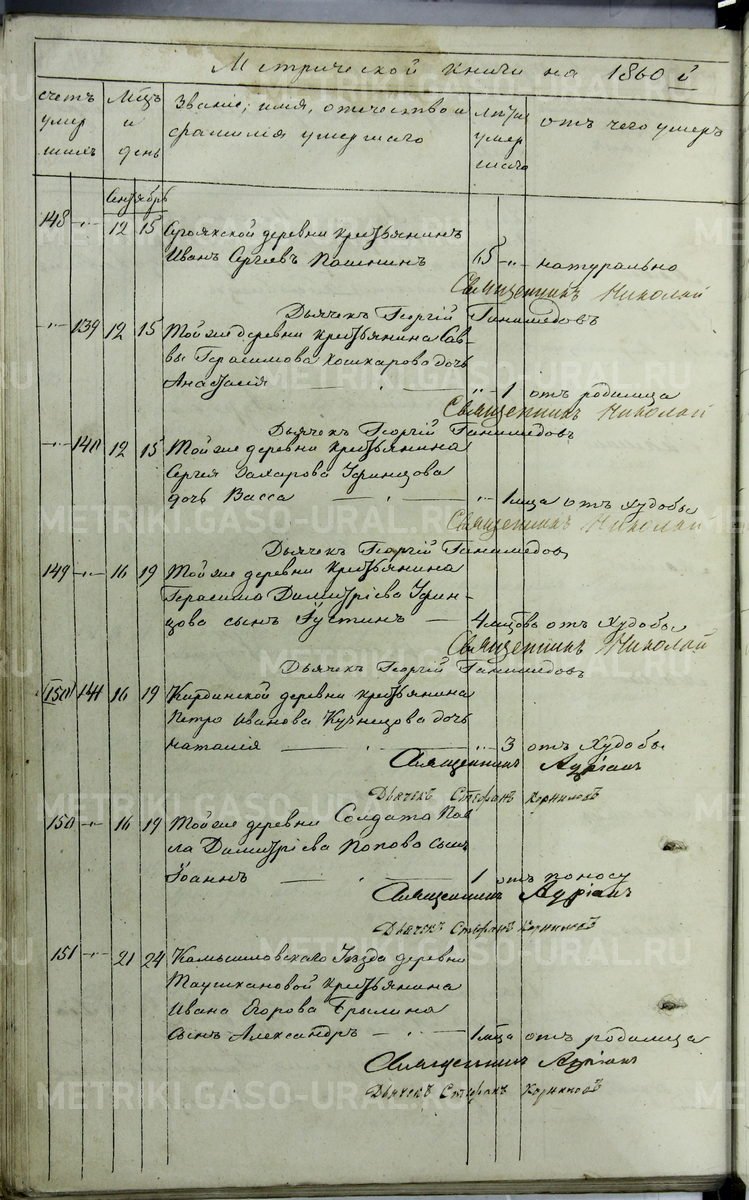 Метрической книги на 1860 й
счетъ умер шихъ
Мцъ и день
Званіе, имя, отечество и фамилія умершаго
Лѣта умер шаго
отъ чего умеръ
Сентябрь
148 12 15 деревни крестьянинъ
Иванъ Сергѣевъ Пашнинъ 65 натурально
Священникъ Николай
Дьячекъ Георгій Ганимедовъ
139 12 15 Той же деревни крестьянина Сав-
вы Герасимова Кошкарова дочь
Анатолія 1 отъ родимца
Священникъ Николай
Дьячекъ Георгій Ганимедовъ
140 12 15 Той же деревни крестьянина
Сергія Захарова Уфинцова
дочь Васса 1 мца отъ худобы
Священникъ Николай
Дьячекъ Георгій Ганимедовъ
149 16 19 Той же деревни крестьянина
Герасима Димитріева Уфин-
цова сынъ Іустинъ 4 мцовъ отъ худобы
Священникъ Николай
Дьячекъ Георгій Ганимедовъ
141 16 19 Кирдинской деревни крестьянина
Петра Иванова Кузнецова дочь
Наталія 3 отъ худобы
Священникъ Адріанъ
Дьячекъ Стефанъ Корниловъ
150 16 19 Той же деревни Солдата Пав-
ла Димитріева Попова сынъ
Іоаннъ 1 отъ поносу
Священникъ Адріанъ
Дьячекъ Стефанъ Корниловъ
151 21 24 Камышловскаго Уѣзда деревни
Таушкановой крестьянина
Ивана Егорова Брылина
сынъ Александръ 1 мца отъ родимца
Священникъ Адріанъ
Дьячекъ Стефанъ Корниловъ
METRIKI.GASO-URAL.RU